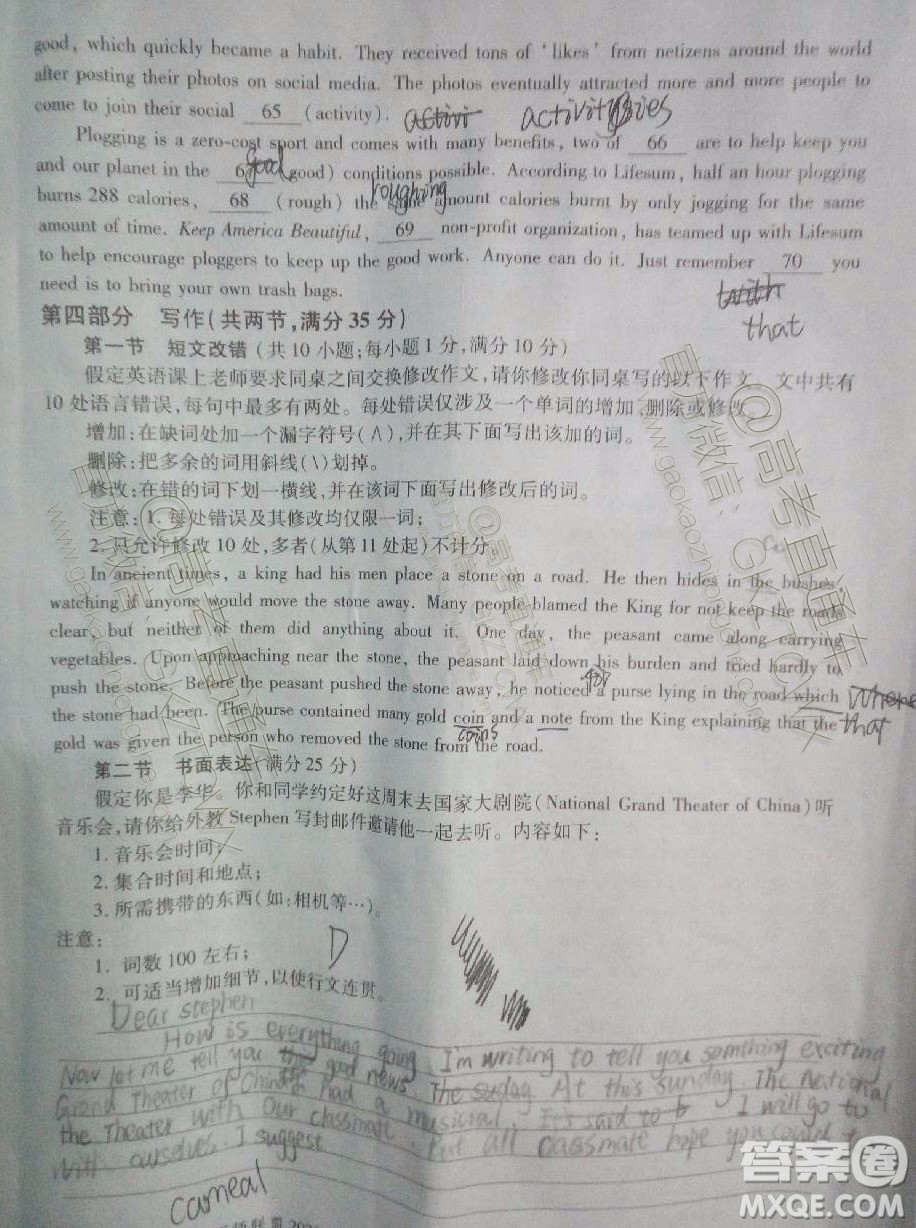 good, which quickly became a habit. They received tons of 'likes' from netizens around the world
after posting their photos on social media. The photos eventually attracted more and more people to
come to join their social 65 (activity). activi activities
Plogging is a zero-cost sport and comes with many benefits, two of 66 are to help keep you
and our planet in the good good) conditions possible. According to Lifesum, half an hour plogging
roughing
burns 288 calories, 68 (rough) the same amount calories burnt by only jogging for the same
amount of time. Keep America Beautiful, 69 non-profit organization, has teamed up with Lifesum
to help encourage ploggers to keep up the good work. Anyone can do it. Just remember 70 you
need is to bring your own trash bags. with
that
第四部分 写作(共两节,满分35分)
第一节 短文改错(共10小题;每小题1分,满分10分)
假定英语课上老师要求同桌之间交换修改作文,请你修改你同桌写的以下作文。文中共有
10处语言错误,每句中最多有两处。每处错误仅涉及一个单词的增加、删除或修改。
增加:在缺词处加一个漏字符号(∧),并在其下面写出该加的词。
删除:把多余的词用斜线(\)划掉。
修改:在错的词下划一横线,并在该词下面写出修改后的词。
注意:1. 每处错误及其修改均仅限一词;
2. 只允许修改10处,多者(从第11处起)不计分。
In ancient times, a king had his men place a stone on a road. He then hides in the bushes,
watching if anyone would move the stone away. Many people blamed the King for not keep the roads
clear, but neither of them did anything about it. One day, the peasant came along carrying
vegetables. Upon approaching near the stone, the peasant laid down his burden and tried hardly to
push the stone. Before the peasant pushed the stone away, he noticed a purse lying in the road which where
for
the stone had been. The purse contained many gold coin and a note from the King explaining that the that
coins
gold was given the person who removed the stone from the road.
第二节 书面表达(满分25分)
假定你是李华。你和同学约定好这周末去国家大剧院(National Grand Theater of China)听
音乐会,请你给外教Stephen写封邮件邀请他一起去听。内容如下:
1. 音乐会时间;
2. 集合时间和地点;
3. 所需携带的东西(如:相机等…)。
注意:
D
1. 词数100左右;
2. 可适当增加细节,以使行文连贯。
Dear stephen
How is everything going. I'm writing to tell you somthing exciting
Now let me tell you good news. The sunday At this sunday. The National
Grand Theater of China had a musical, It's said to b I will go to
the Theater with our classmate. But all classmate hope you could t
with ourselves. I suggest
cameal
答案圈
MXQE.COM
直通车
@高考直通车
www.gaokaozhitongche.com